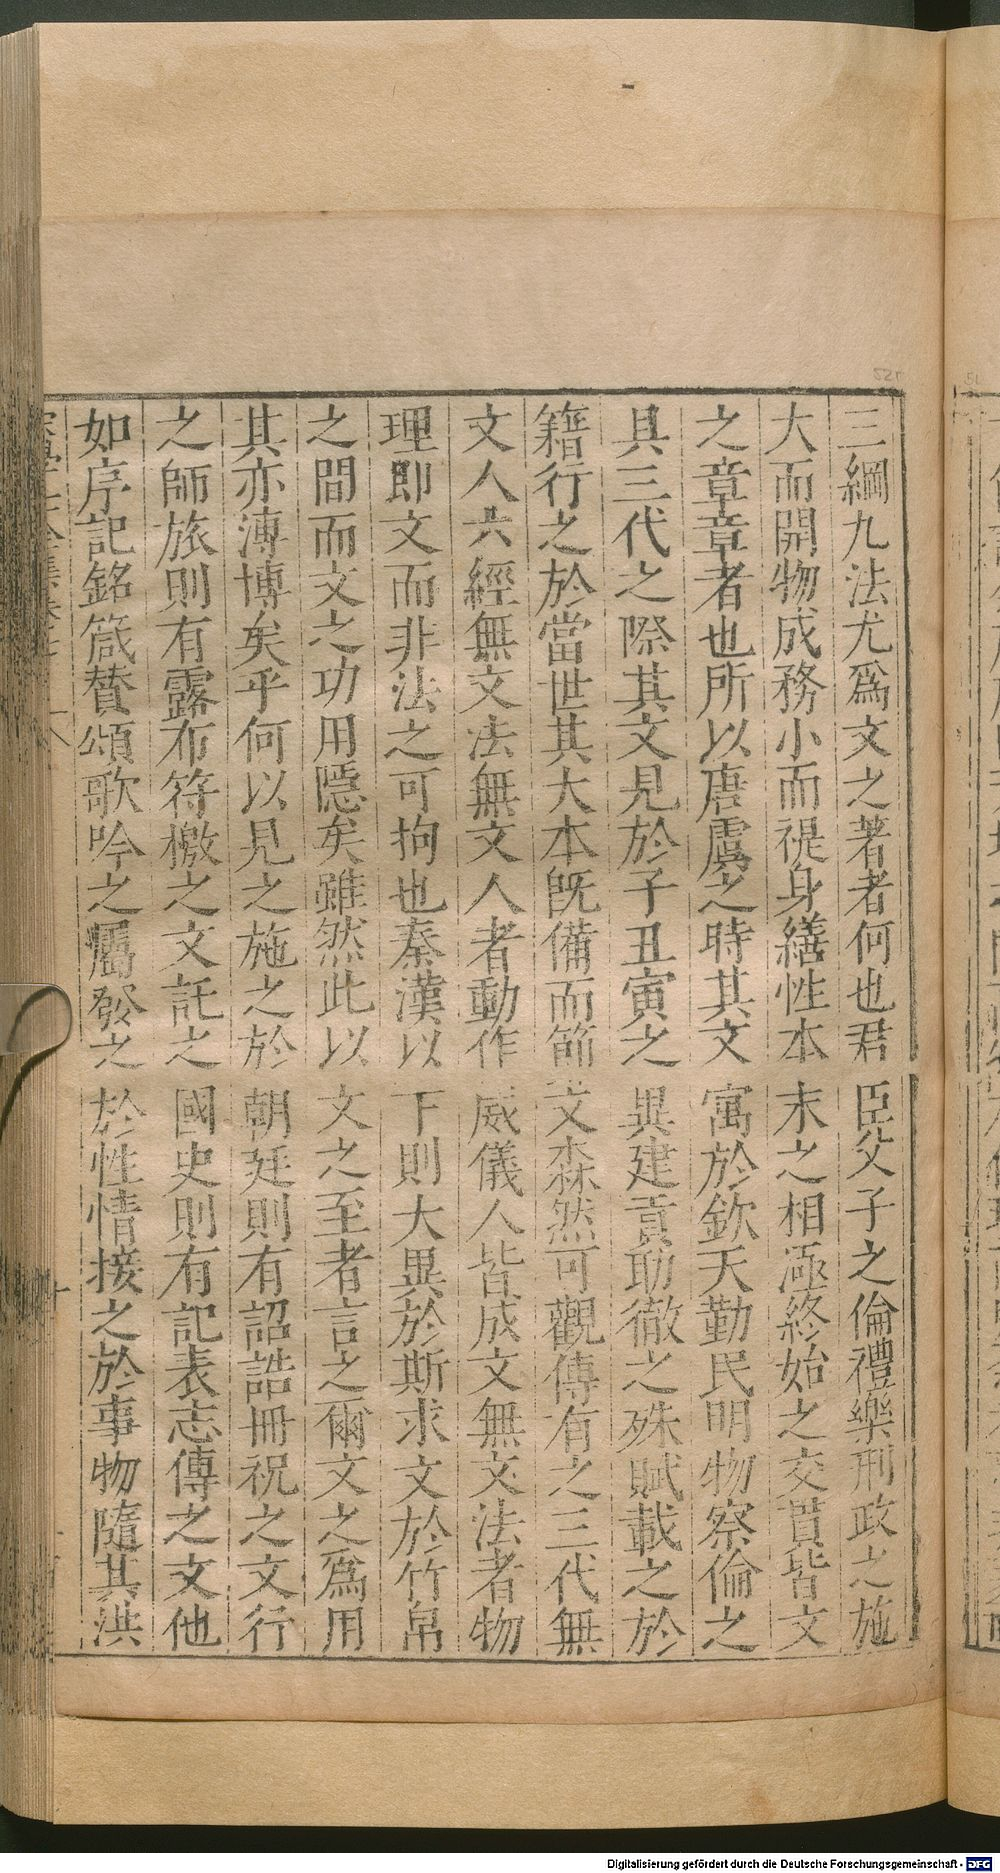 三綱九法尤爲文之著者何也君臣父子之倫禮樂刑政之施
大而開物成務小而禔身繕性本末之相涵終始之交貫皆文
之章章者也所以唐虞之時其文寓於欽天勤民明物察倫之
具三代之際其文見於子丑寅之異建貢助徹之殊賦載之於
籍行之於當世其大本旣備而節文森然可觀傳有之三代無
文人六經無文法無文人者動作威儀人皆成文無文法者物
理卽文而非法之可拘也秦漢以下則大異於斯求文於竹帛
之間而文之功用隱矣雖然此以文之至者言之爾文之爲用
其亦溥博矣乎何以見之施之於朝廷則有詔誥冊祝之文行
之師旅則有露布符檄之文託之國史則有記表志傳之文他
如序記銘箴賛頌歌吟之屬發之於性情接之於事物隨其洪
Digitalisierung gefördert durch die Deutsche Forschungsgemeinschaft - DFG